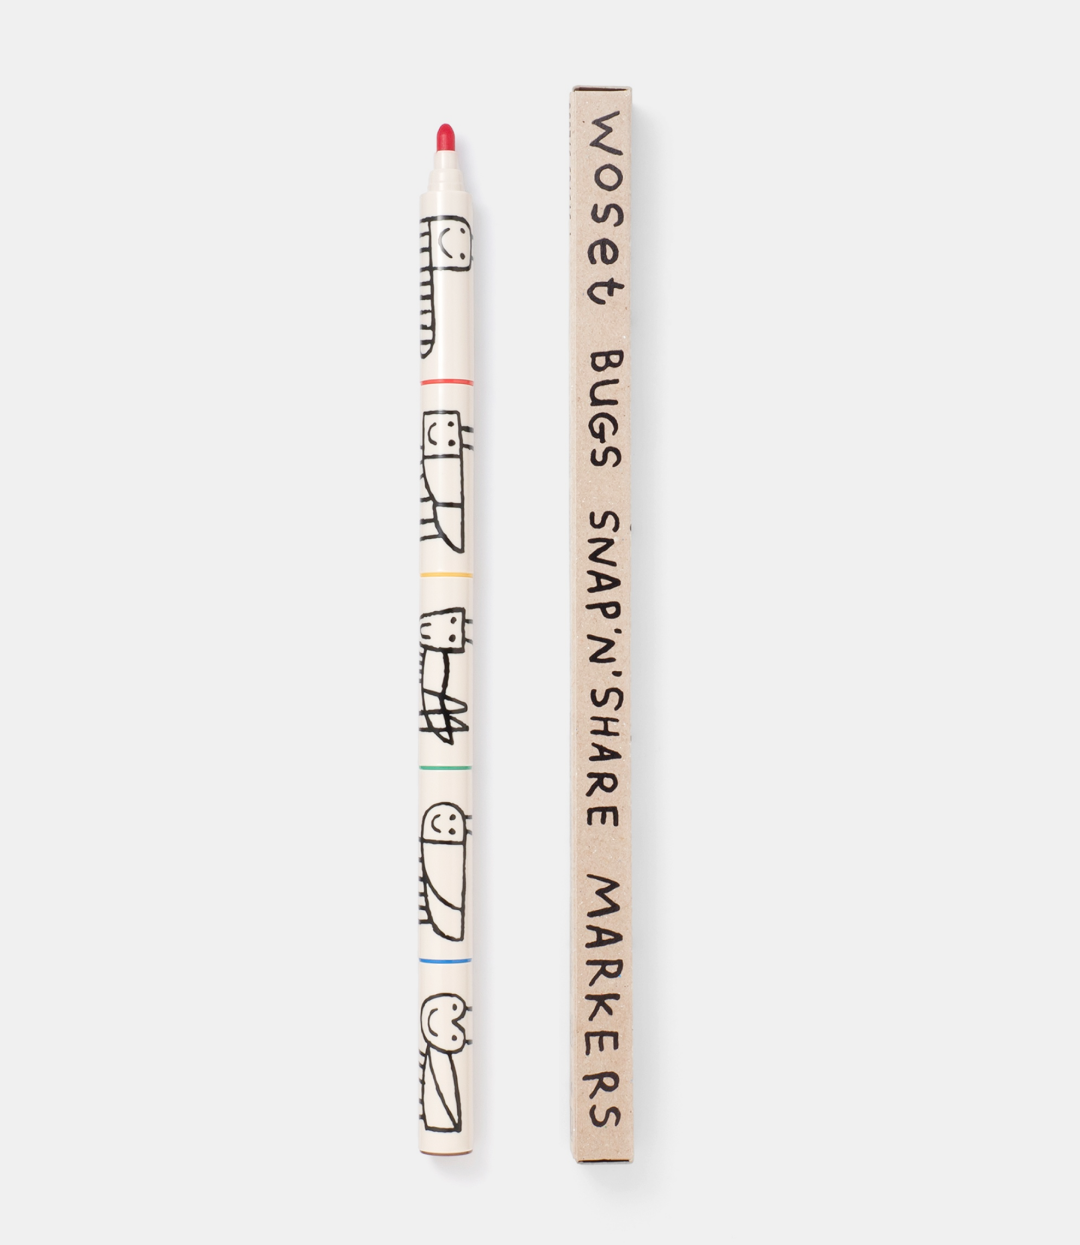 woset BUGS SNAP'N'SHARE MARKERS